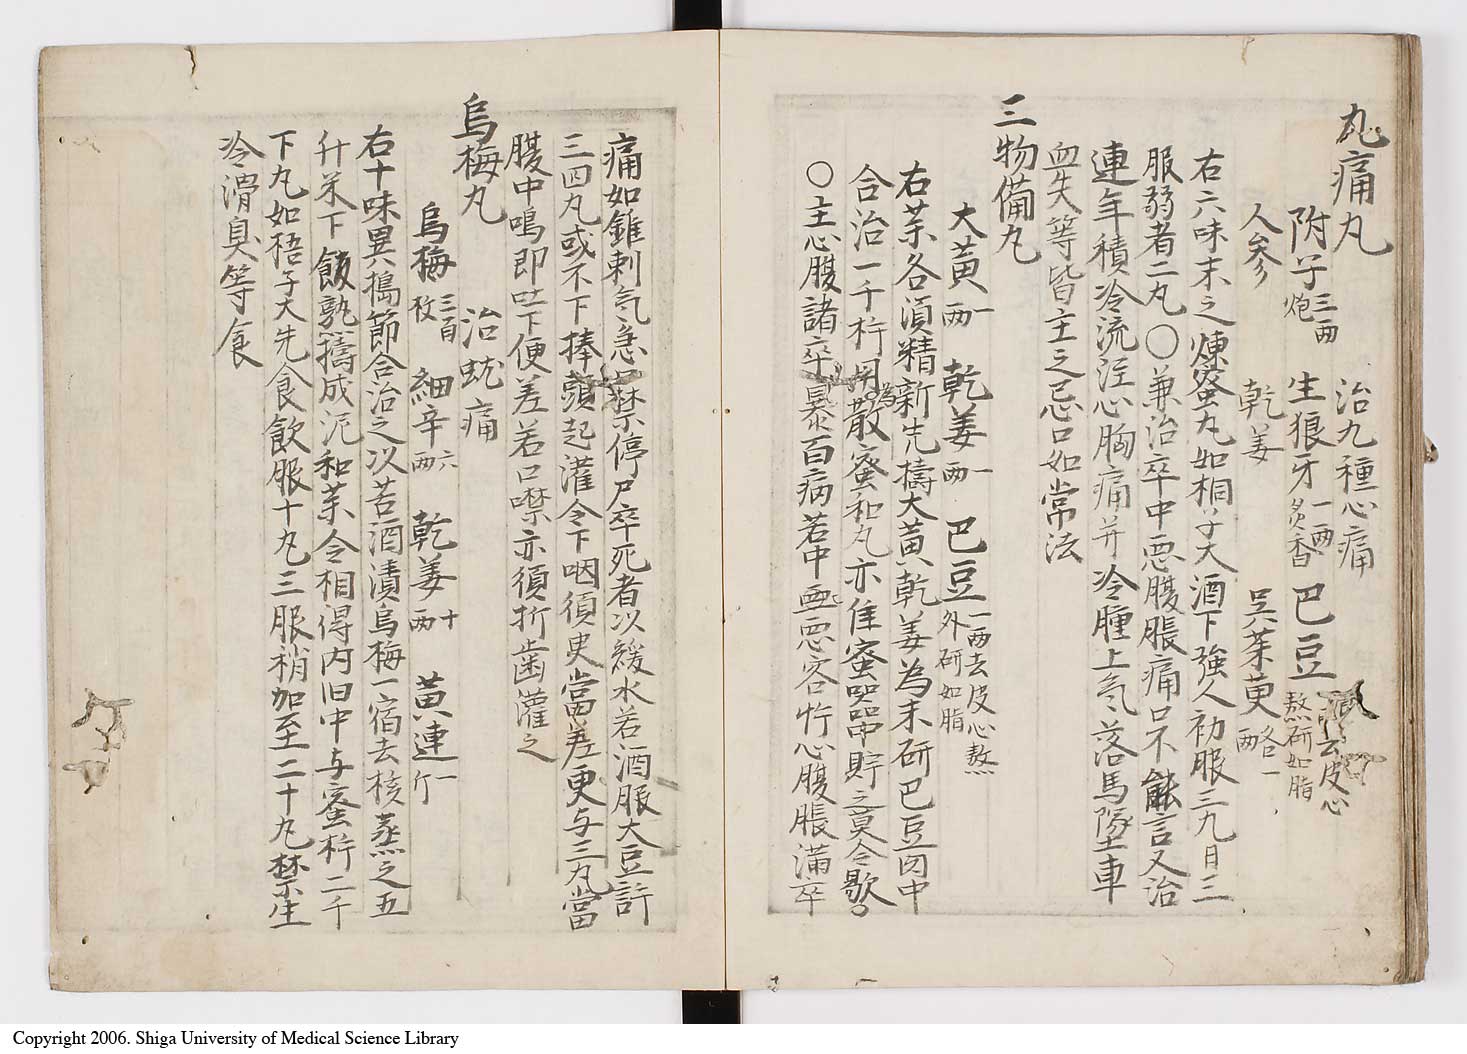 九痛丸 治九種心痛
附子三兩炮 生狼牙一兩炙香 巴豆去皮心熬研如脂
人参 乾姜 呉茱萸各一兩
右六味末之煉蜜丸如桐子大酒下強人初服三丸日三
服弱者二丸〇兼治卒中悪腹脹痛口不能言又治
連年積冷流注心胸痛并冷腫上気落馬墜車
血失等皆主之忌口如常法
三物備丸
大黄一兩 乾姜一兩 巴豆一兩去皮心熬外研如脂
右薬各須精新先擣大黄乾姜為末研巴豆内中
合治一千杵用為散蜜和丸亦佳蜜器中貯之莫令歇。
〇主心腹諸卒暴百病若中悪客忤心腹脹満卒
痛如錐刺気急口禁停尸卒死者以緩水若酒服大豆許
三四丸或不下捧頭起灌令下咽須臾當差更与三丸當
腹中鳴即吐下便差若口噤亦須折歯灌之
烏梅丸 治蚘痛
烏梅三百枚 細辛六兩 乾姜十兩 黄連一斤
右十味異搗篩合治之以苦酒漬烏梅一宿去核蒸之五
升米下飯熟擣成泥和薬令相得内臼中与蜜杵二千
下丸如梧子大先食飲服十丸三服稍加至二十丸禁生
冷滑臭等食
Copyright 2006. Shiga University of Medical Science Library